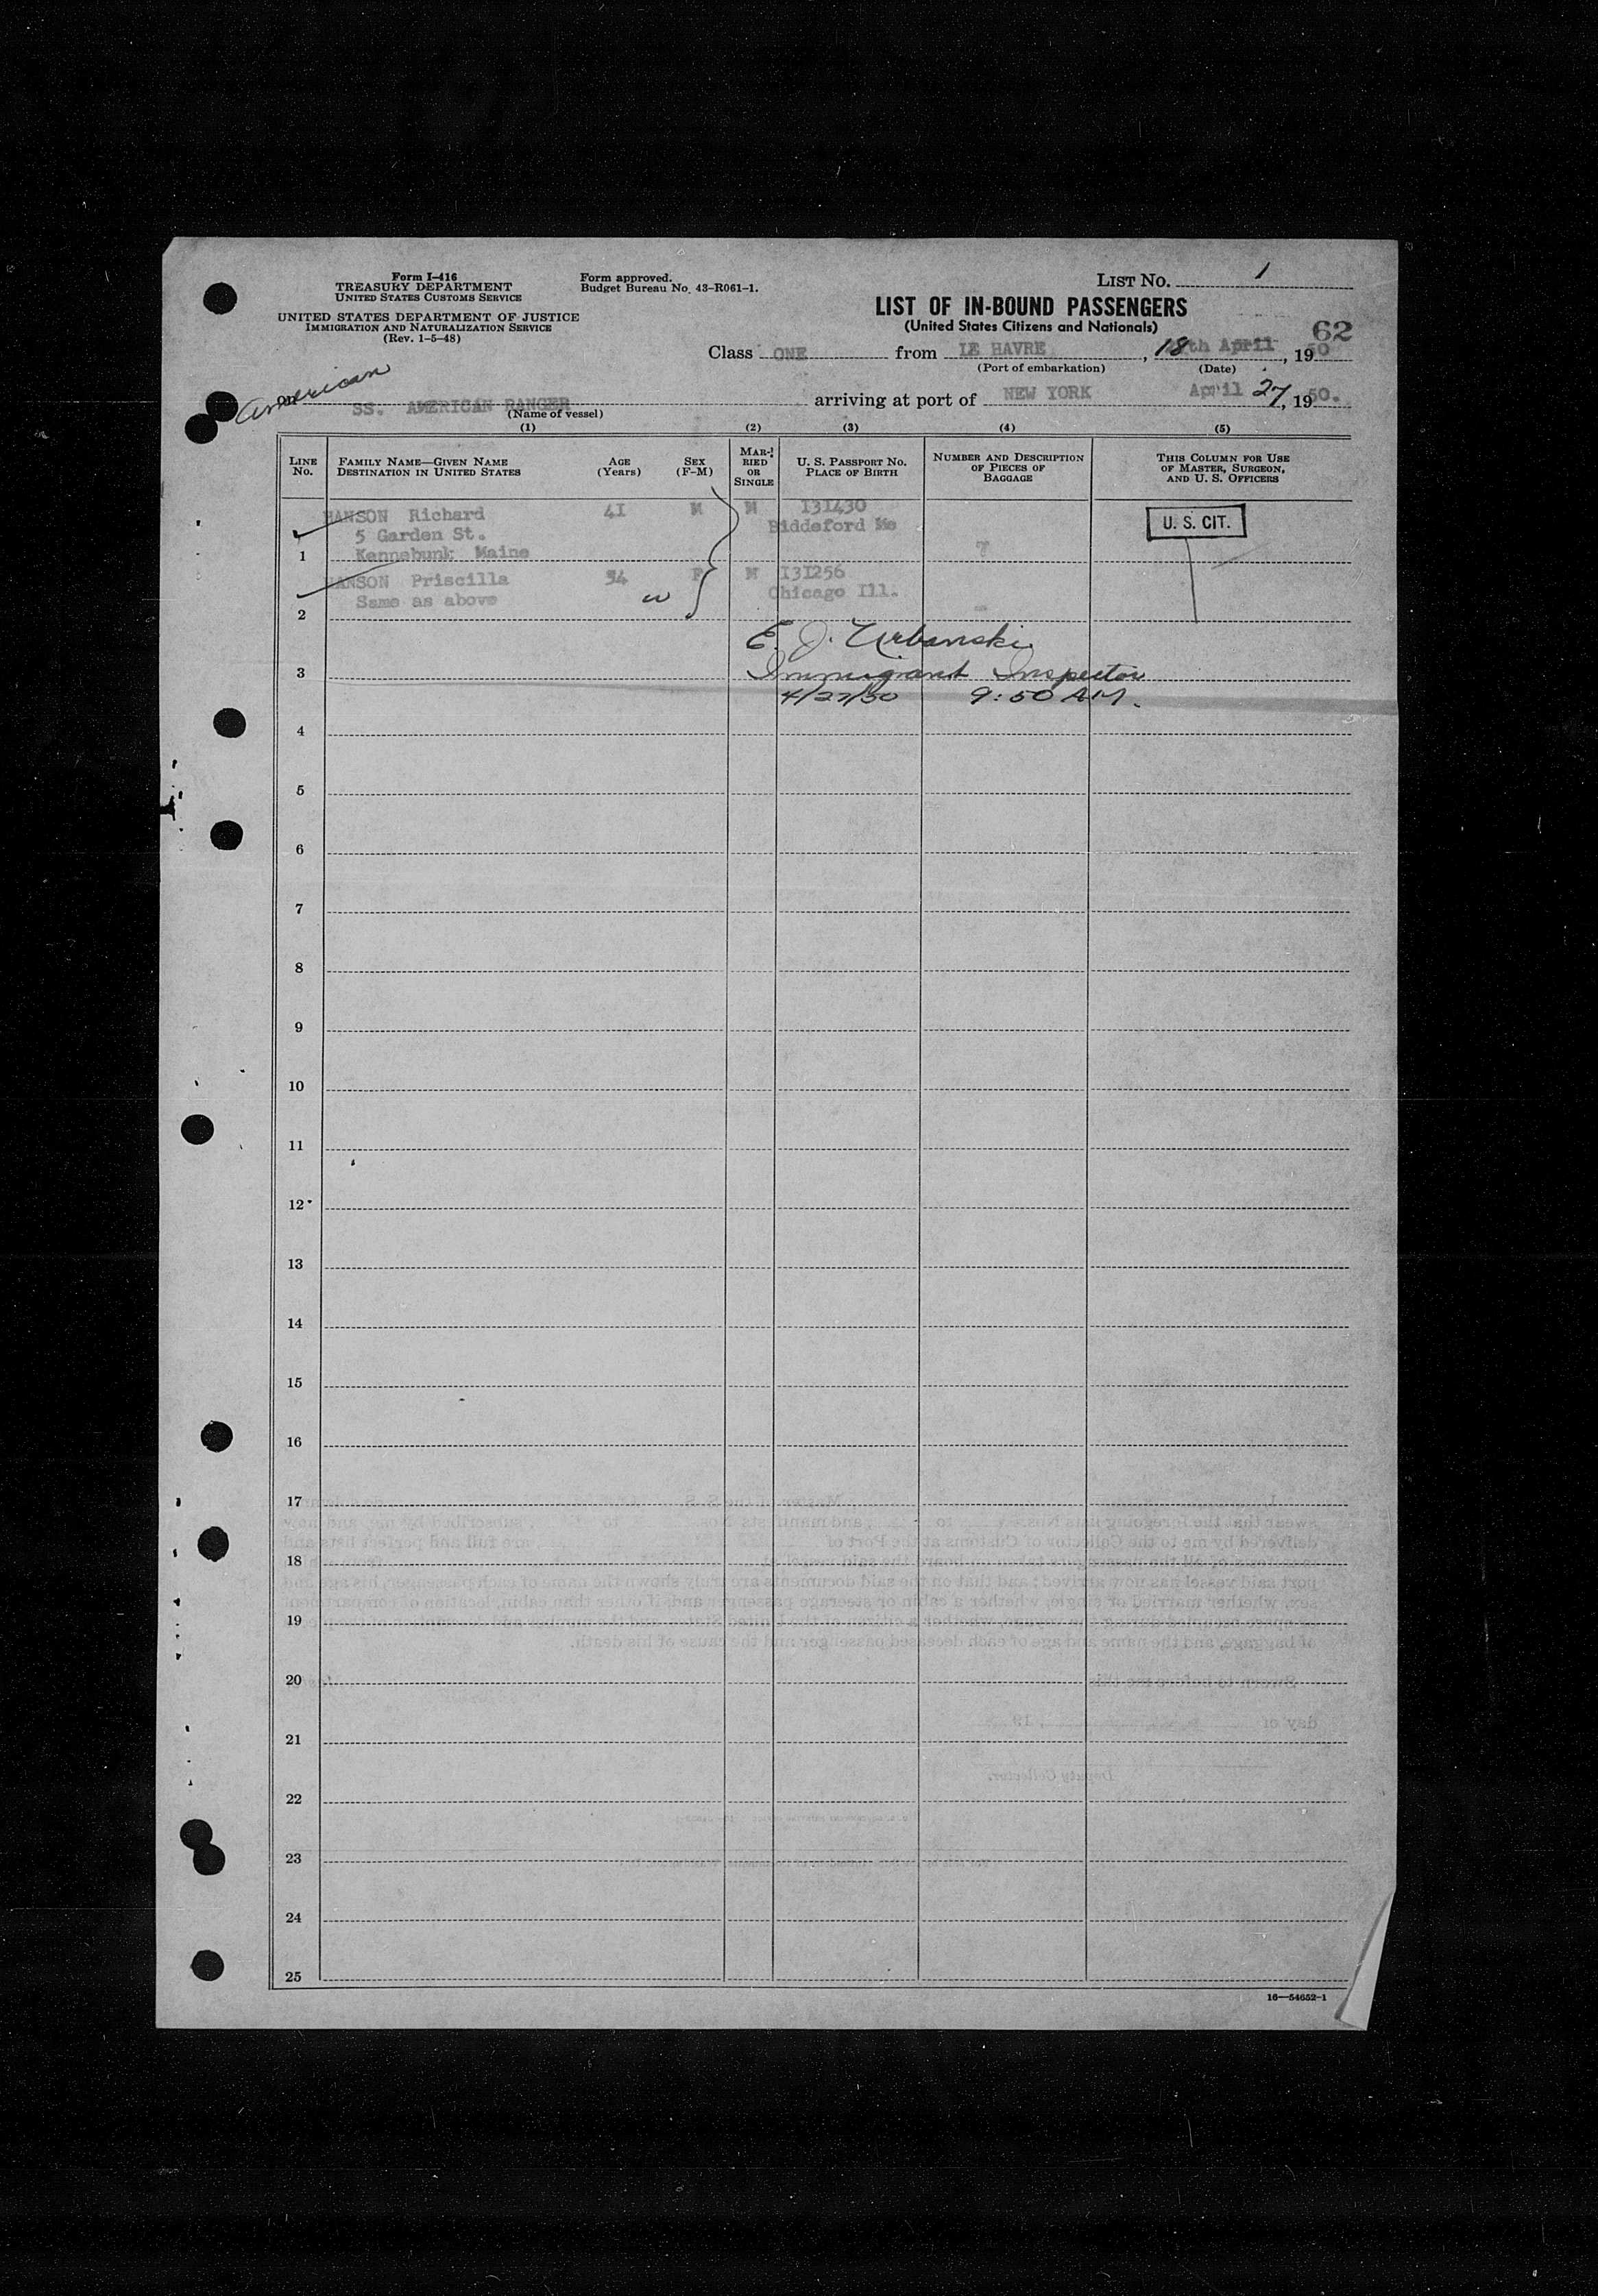 Form I-416
TREASURY DEPARTMENT
UNITED STATES CUSTOMS SERVICE
UNITED STATES DEPARTMENT OF JUSTICE
IMMIGRATION AND NATURALIZATION SERVICE
(Rev. 1-5-48)
Form approved.
Budget Bureau No. 43-R061-1.
LIST NO. 1
LIST OF IN-BOUND PASSENGERS
(United States Citizens and Nationals)
62
Class ONE from LE HAVRE, 18th April, 1950
(Port of embarkation) (Date)
American
on SS. AMERICAN RANGER arriving at port of NEW YORK April 27, 1950.
(Name of vessel)
(1) (2) (3) (4) (5)
LINE No. FAMILY NAME—GIVEN NAME DESTINATION IN UNITED STATES AGE (Years) SEX (F-M) MARRIED OR SINGLE U. S. PASSPORT NO. PLACE OF BIRTH NUMBER AND DESCRIPTION OF PIECES OF BAGGAGE THIS COLUMN FOR USE OF MASTER, SURGEON, AND U. S. OFFICERS
HANSON Richard 41 M M 131430 U. S. CIT.
5 Garden St. Biddeford Me
1 Kennebunk Maine 7
HANSON Priscilla 34 F M 131256
Same as above w Chicago Ill. -
2
E. J. Urbanski
3 Immigrant Inspector
4/27/50 9:50 AM.
4
5
6
7
8
9
10
11
12
13
14
15
16
17
18
19
20
21
22
23
24
25
16—54652-1